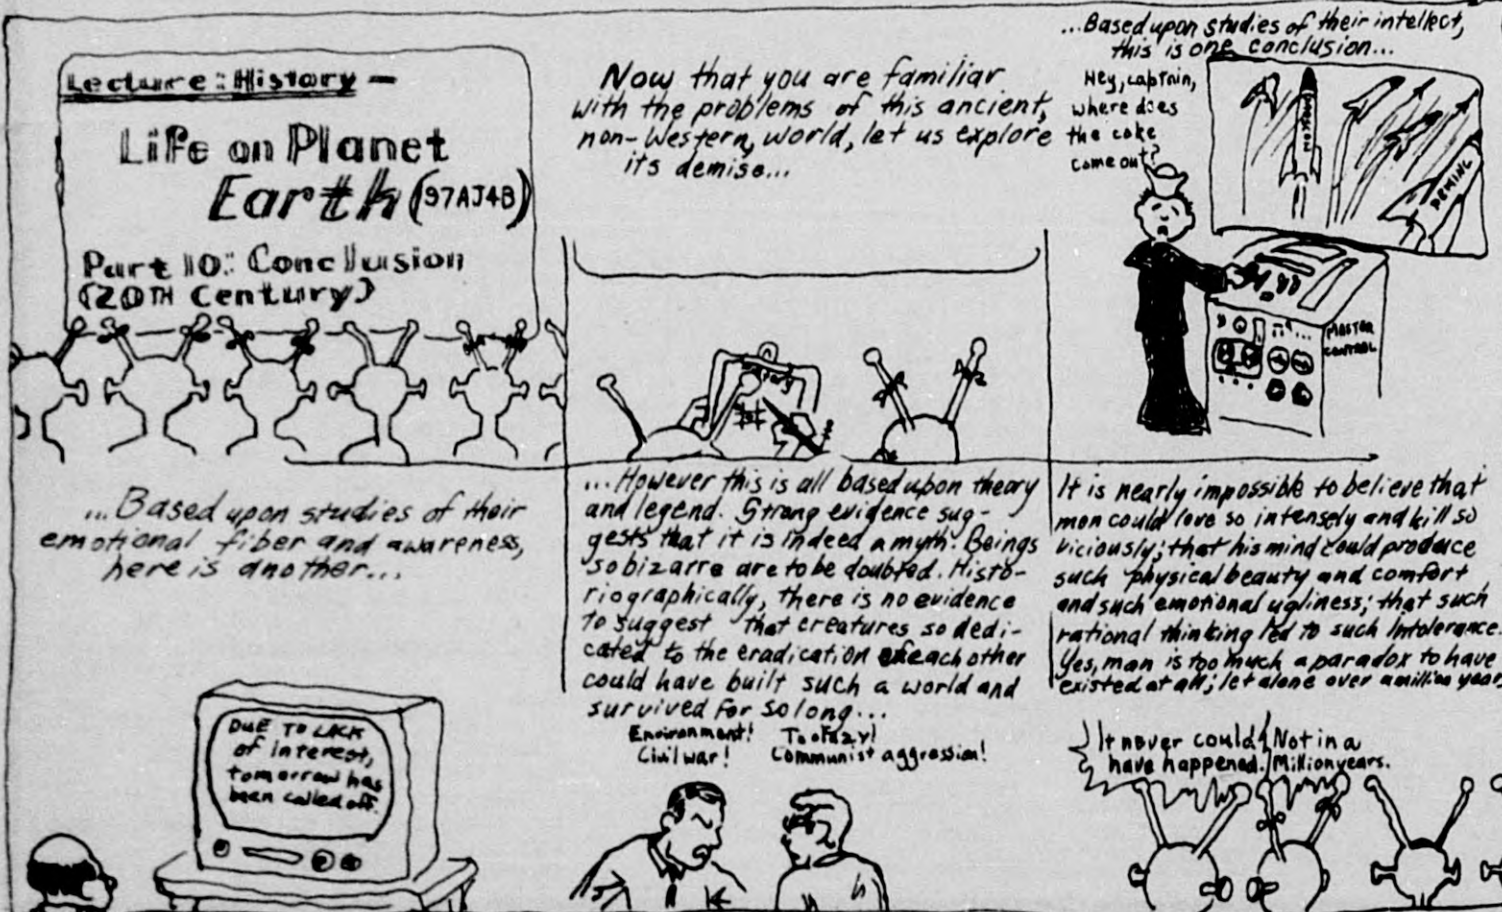 Lecture: History —
Life on Planet
Earth (97AJ4B)
Part 10: Conclusion
(20TH Century)
Now that you are familiar
with the problems of this ancient,
non-Western, world, let us explore
its demise...
...Based upon studies of their intellect,
this is one conclusion...
Hey, captain,
where does
the coke
come out?
MASTER
CONTROL
...Based upon studies of their
emotional fiber and awareness,
here is another...
DUE TO LACK
of interest,
tomorrow has
been called off.
...However this is all based upon theory
and legend. Strong evidence sug-
gests that it is indeed a myth. Beings
so bizarre are to be doubted. Histo-
riographically, there is no evidence
to suggest that creatures so dedi-
cated to the eradication of each other
could have built such a world and
survived for so long...
Environment!
Civil war!
Communist aggression!
It is nearly impossible to believe that
man could love so intensely and kill so
viciously; that his mind could produce
such physical beauty and comfort
and such emotional ugliness; that such
rational thinking led to such intolerance.
Yes, man is too much a paradox to have
existed at all; let alone over a million years
It never could
have happened.
Not in a
Million years.